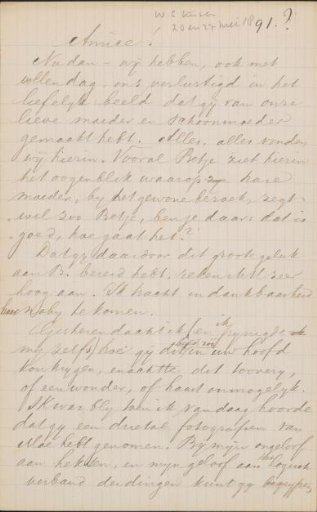 20 en 27 mei 1891.?
Amice.
Nu dan – wy hebben, ook met
vollen dag, ons verlustigd in het
liefelyk beeld dat gy van onze
lieve moeder en schoonmoeder
gemaakt hebt. Alles, alles vonden
wy hierin. Vooral Betje ziet hierin
het oogenblik waarop hare
moeder, by het gewone bezoek, zegt
wel zoo Betje, ben je daar dat is
goed, hoe gaat het?
Dat gy daardoor dit groote geluk
aan B. bereid hebt, reken ik U zeer
hoog aan. Ik tracht in dankbaarheid
naby te komen.
Gisteren dacht ik en ik
my zelf, hoe gy dit in uw hoofd
kon krygen, en achtte, dit toovery,
of een wonder, of haast onmogelyk.
Ik was bly toen ik van daag hoorde
dat gy een drietal fotografien van
Moe hebt genomen. By myn ongeloof
aan heksen, en myn geloof aan het logisch
verband der dingen kunt gy begrypen